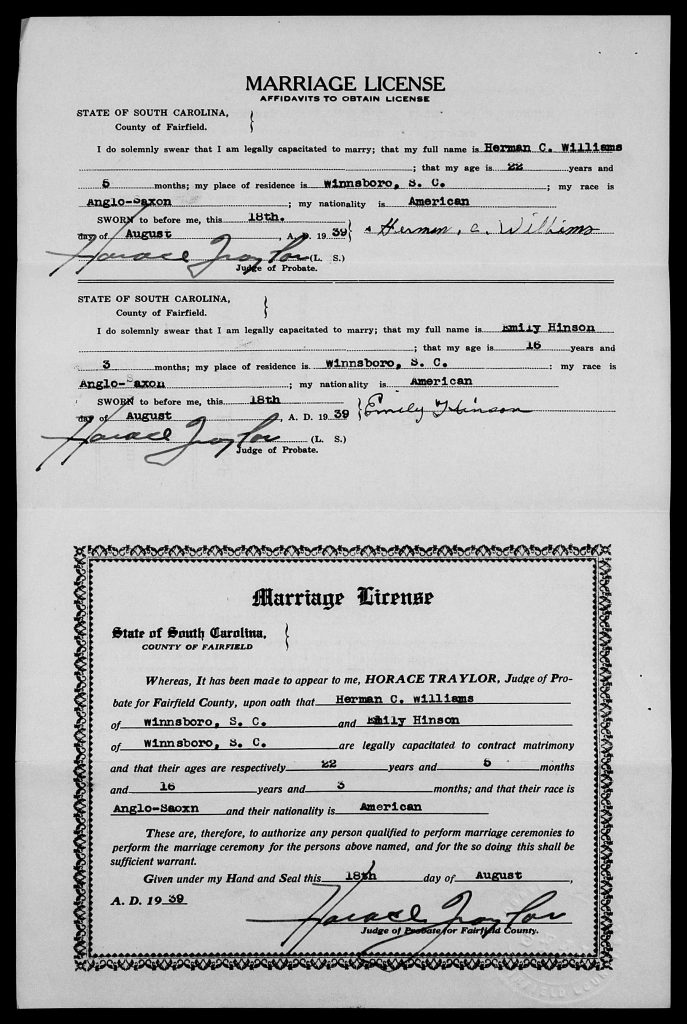 MARRIAGE LICENSE
AFFIDAVITS TO OBTAIN LICENSE
STATE OF SOUTH CAROLINA,
County of Fairfield.
I do solemnly swear that I am legally capacitated to marry; that my full name is Herman C. Williams
; that my age is 22 years and
5 months; my place of residence is Winnsboro, S. C. ; my race is
Anglo-Saxon ; my nationality is American
SWORN to before me, this 18th.
day of August , A. D. 19 39 Herman. C. Williams
Horace Traylor (L. S.)
Judge of Probate.
STATE OF SOUTH CAROLINA,
County of Fairfield.
I do solemnly swear that I am legally capacitated to marry; that my full name is Emily Hinson
; that my age is 16 years and
3 months; my place of residence is Winnsboro, S. C. ; my race is
Anglo-Saxon ; my nationality is American
SWORN to before me, this 18th
day of August , A. D. 19 39 Emily Hinson
Horace Traylor (L. S.)
Judge of Probate.
Marriage License
State of South Carolina,
COUNTY OF FAIRFIELD
Whereas, It has been made to appear to me, HORACE TRAYLOR, Judge of Pro-
bate for Fairfield County, upon oath that Herman C. Williams
of Winnsboro, S. C. and Emily Hinson
of Winnsboro, S. C. are legally capacitated to contract matrimony
and that their ages are respectively 22 years and 5 months
and 16 years and 3 months; and that their race is
Anglo-Saoxn and their nationality is American
These are, therefore, to authorize any person qualified to perform marriage ceremonies to
perform the marriage ceremony for the persons above named, and for the so doing this shall be
sufficient warrant.
Given under my Hand and Seal this 18th day of August ,
A. D. 19 39
Horace Traylor
Judge of Probate for Fairfield County.